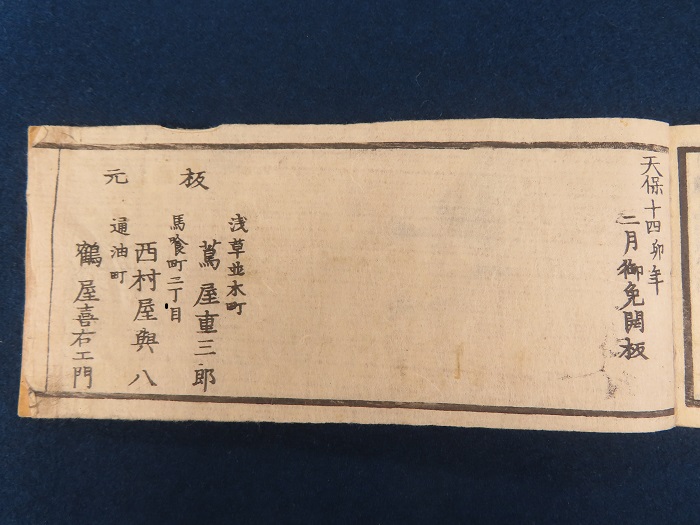 天保十四卯年
二月御免開板
板元
浅草並木町
蔦屋重三郎
馬喰町二丁目
西村屋與八
通油町
鶴屋喜右エ門